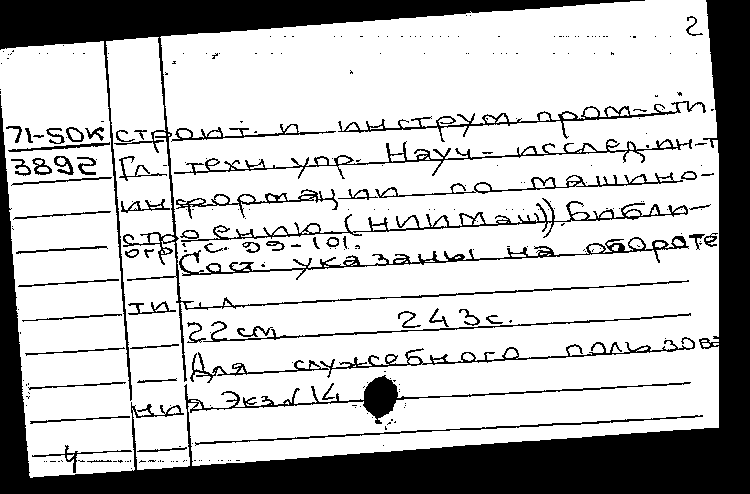 2
71-50К строит. и инструм. пром-сти.
3892 Гл. техн. упр. Науч.- исслед. ин-т
информации по машино-
строению (НИИМаш)). Библи-
огр.: с. 99-101.
Сост. указаны на обороте
тит. л.
22 см 243 с.
Для служебного пользова
ния Экз. № 14
4